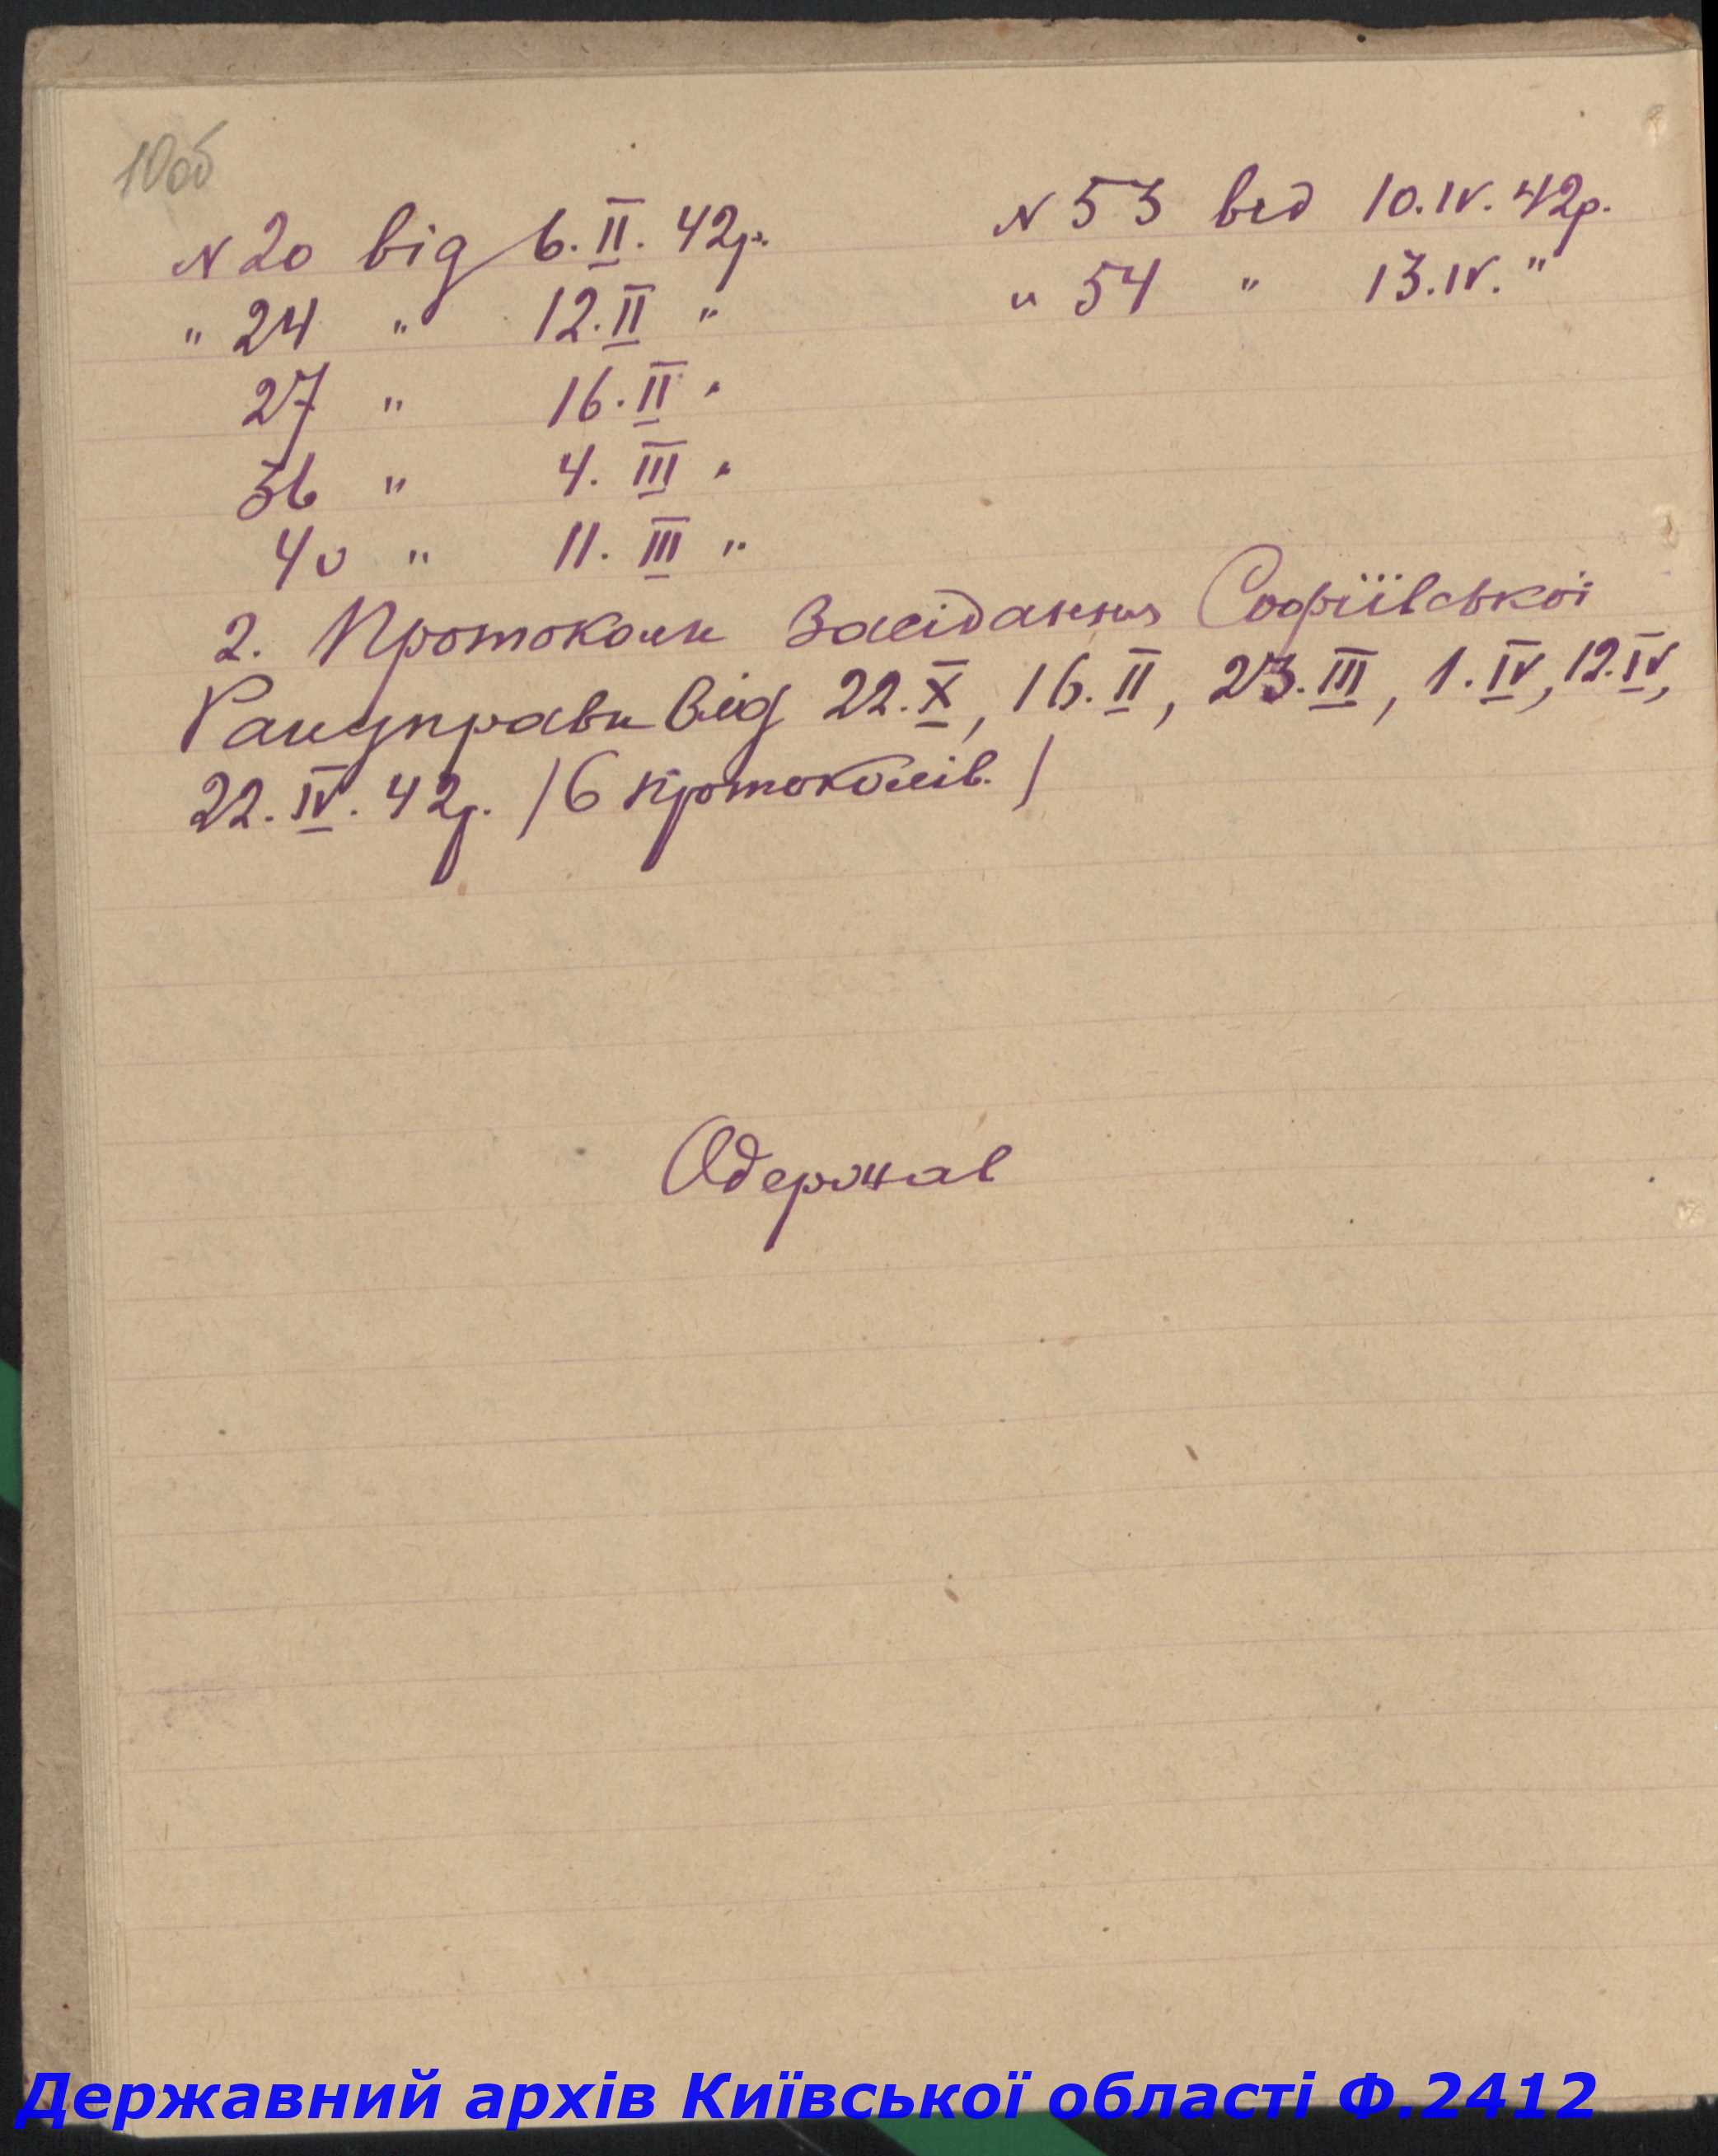 10об
N 20 від 6.II. 42р.
" 24 " 12.II "
27 " 16.II "
36 " 4. III "
40 " 11. III "
N 53 від 10.IV. 42р.
" 54 " 13.IV. "
2. Протоколи Засідання Софіївської
Райуправи від 22.X, 16.II, 23.III, 1.IV, 12.IV,
22.IV. 42р. /6 протоколів./
Одержав
Державний архів Київської області Ф.2412